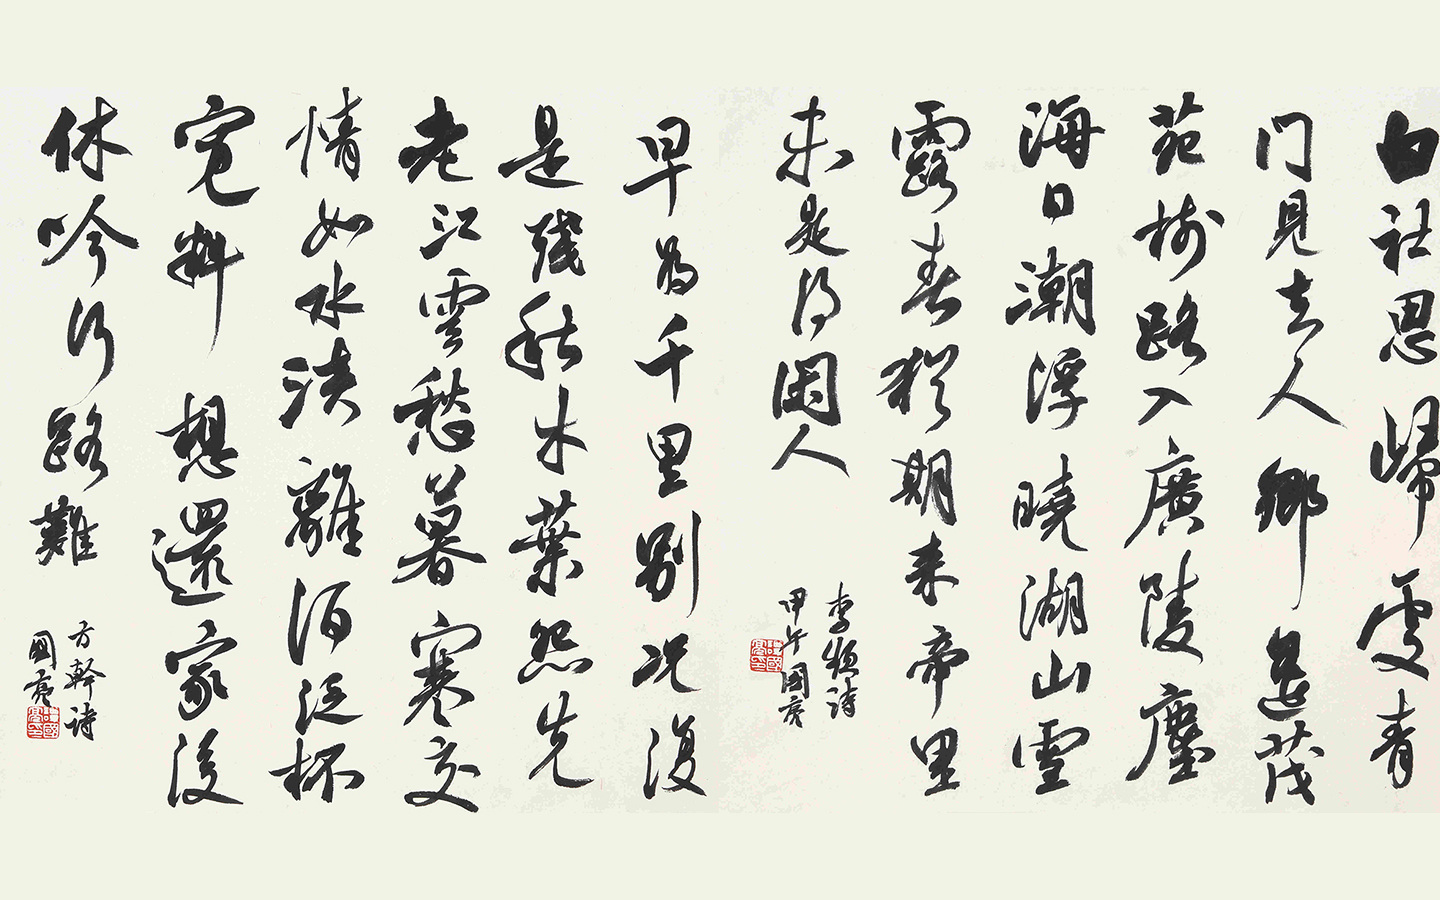 白社思歸處青
门見去人鄉遥茂
苑樹路入廣陵塵
海日潮浮曉湖山雪
露春猶期来帝里
未是得閑人
李頻詩
甲午國亮
早為千里別況復
是殘秋木葉怨先
老江雲愁暮寒交
情如水淡離酒泛杯
寬料想還家後
休吟行路難
方幹詩
國亮